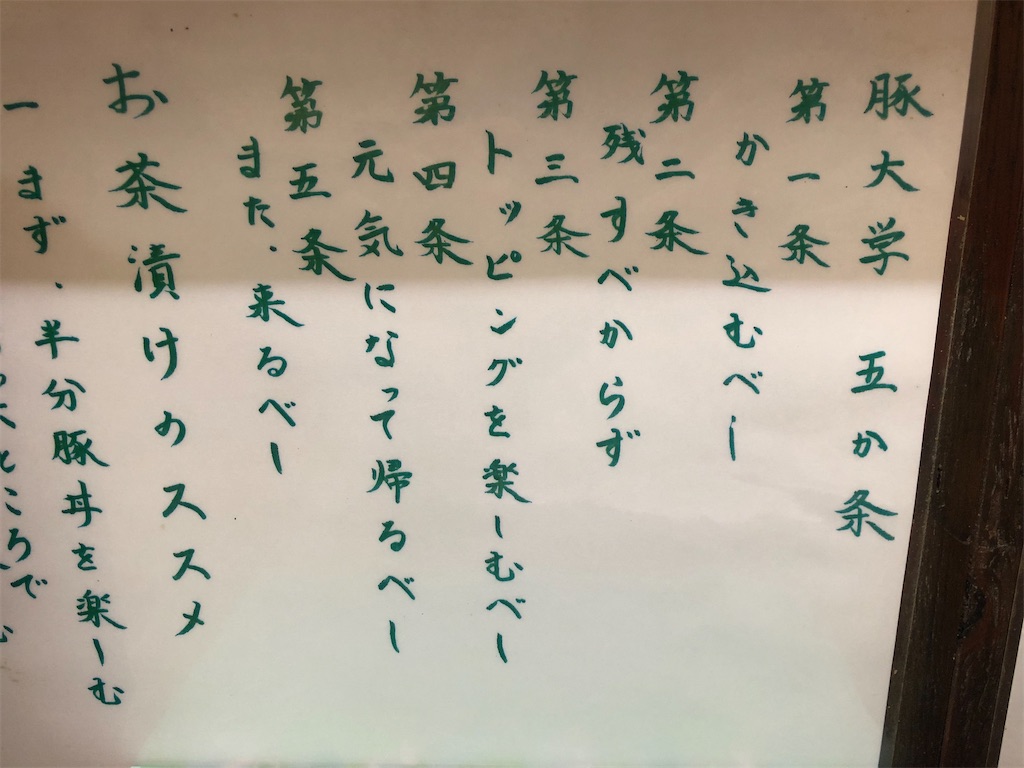 豚大学 五か条
第一条
かき込むべし
第二条
残すべからず
第三条
トッピングを楽しむべし
第四条
元気になって帰るべし
第五条
また、来るべし
お茶漬けのススメ
一 まず、半分豚丼を楽しむ
ところで